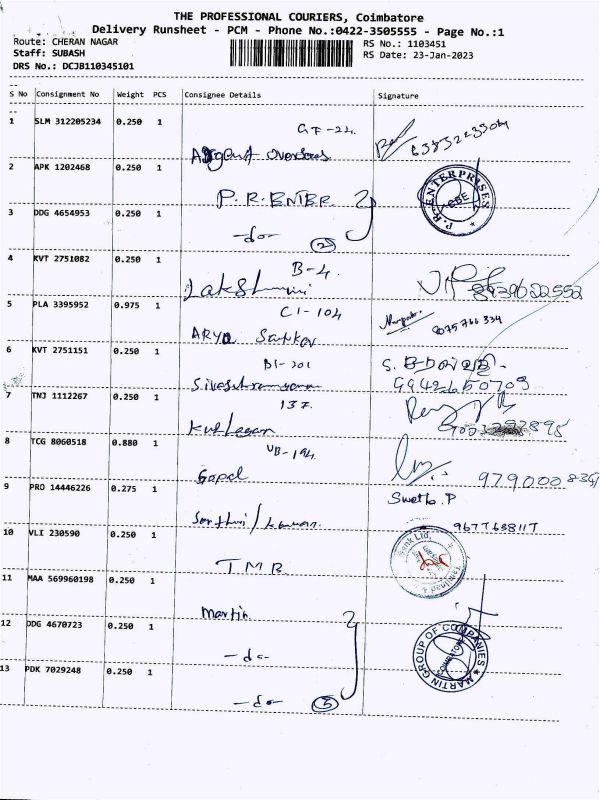 THE PROFESSIONAL COURIERS, Coimbatore
Delivery Runsheet - PCM - Phone No.:0422-3505555 - Page No.:1
Route: CHERAN NAGAR
RS No.: 1103451
Staff: SUBASH
RS Date: 23-Jan-2023
DRS No.: DCJB110345101
S No Consignment No Weight PCS Consignee Details Signature
1 SLM 312205234 0.250 1
GF-22.
overseas
2 APK 1202468 0.250 1
P.R. ENTER
P.R. ENTERPRISES
CBE
3 DDG 4654953 0.250 1
-do-
2
4 KVT 2751082 0.250 1
B-4.
Lakshmi
8939622552
5 PLA 3395952 0.975 1
C1-104
ARYA Sankar
9075766334
6 KVT 2751151 0.250 1
B1-201
9942650709
7 TNJ 1112267 0.250 1
137.
8 TCG 8060518 0.880 1
VB-194.
Gopal
9 PRO 14446226 0.275 1
Swetha.P
9677638117
10 VLI 230590 0.250 1
TMB
Bank Ltd.
11 MAA 569960198 0.250 1
Martin
12 DDG 4670723 0.250 1
-do-
MARTIN GROUP OF COMPANIES
13 PDK 7029248 0.250 1
-do-
3